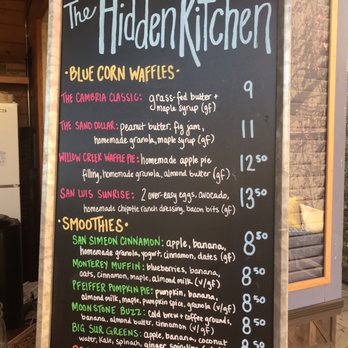 The
Hidden Kitchen
·BLUE CORN WAFFLES·
THE CAMBRIA CLASSIC: grass-fed butter + 9
maple syrup (gf)
THE SAND DOLLAR: peanut butter, fig jam, 11
homemade granola, maple syrup (gf)
WILLOW CREEK WAFFLE PIE: homemade apple pie 12.50
filling, homemade granola, almond butter (gf)
SAN LUIS SUNRISE: 2 over-easy eggs, avocado, 13.50
homemade Chipotle ranch dressing, bacon bits (gf)
·SMOOTHIES·
SAN SIMEON CINNAMON: apple, banana, 8.50
homemade granola, yogurt, cinnamon, dates (gf)
MONTEREY MUFFIN: blueberries, banana, 8.50
oats, cinnamon, maple, almond milk (v/gf)
PFEIFFER PUMPKIN PIE: pumpkin, banana, 8.50
almond milk, maple, pumpkin spice, granola (v/gf)
MOONSTONE BUZZ: cold brew + coffee grounds, 8.50
banana, almond butter, cinnamon (v/gf)
BIG SUR GREENS: apple, banana, coconut 8.50
water, kale, spinach, ginger